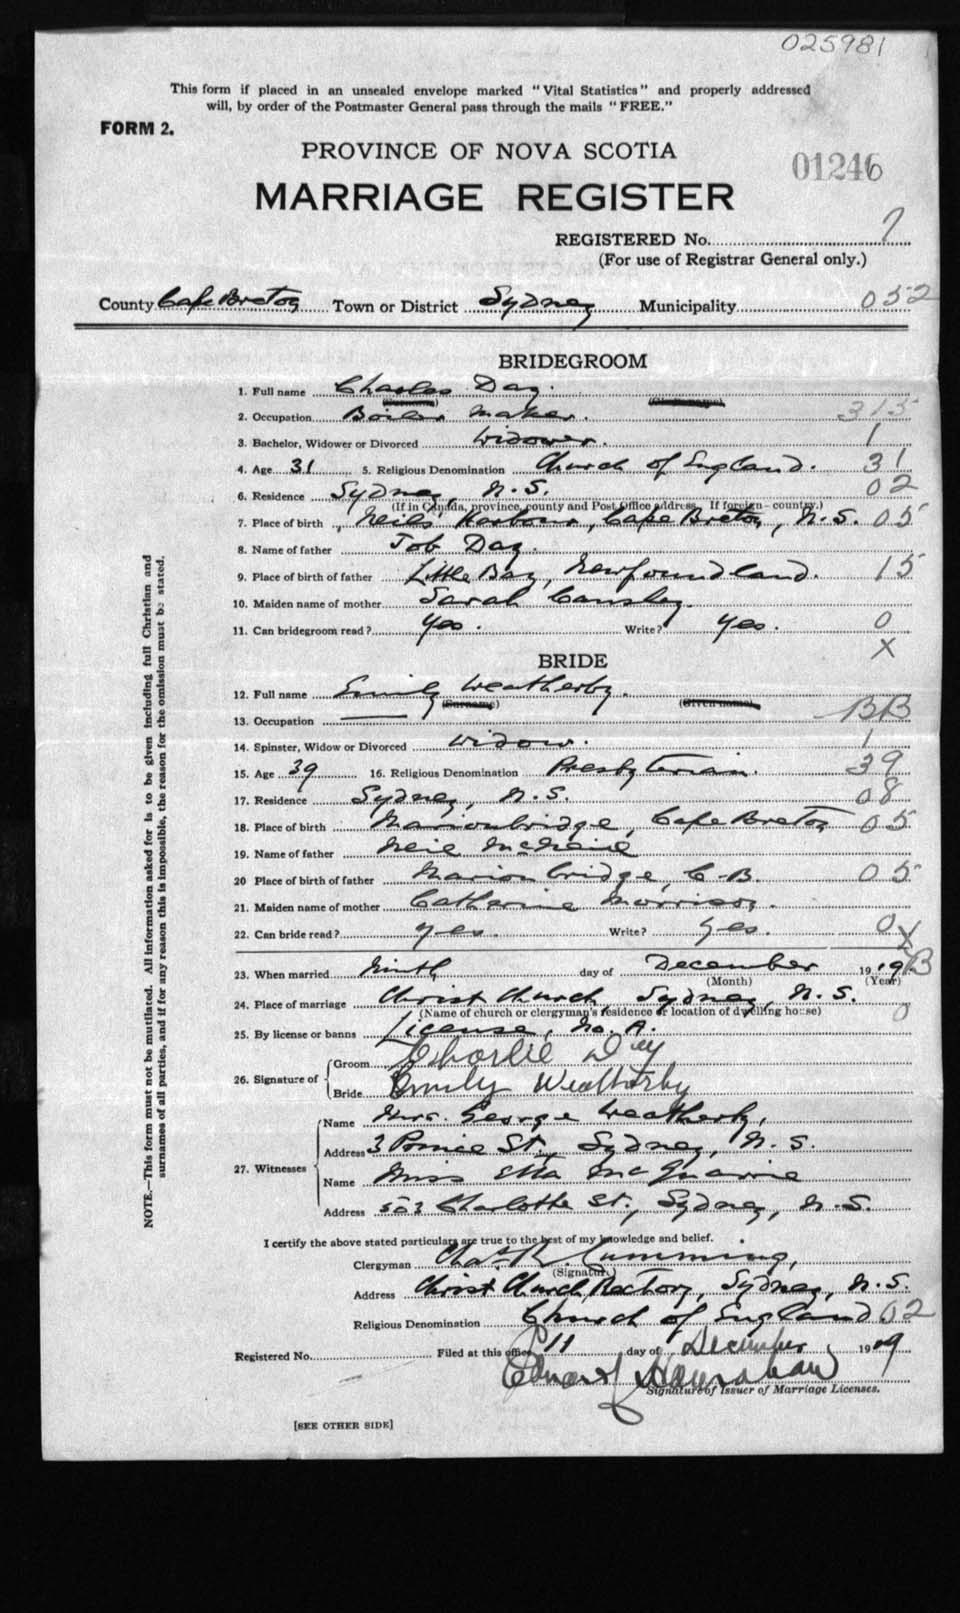 025981
This form if placed in an unsealed envelope marked "Vital Statistics" and properly addressed
will, by order of the Postmaster General pass through the mails "FREE."
FORM 2.
PROVINCE OF NOVA SCOTIA
01246
MARRIAGE REGISTER
REGISTERED No. 7
(For use of Registrar General only.)
County Cape Breton Town or District Sydney Municipality 052
BRIDEGROOM
1. Full name Charles Day.
2. Occupation Boiler maker. 315
3. Bachelor, Widower or Divorced Widower. 1
4. Age 31 5. Religious Denomination Church of England. 31
6. Residence Sydney, N.S. 02
(If in Canada, province, county and Post Office address. If foreign - country.)
7. Place of birth Neils Harbour, Cape Breton, N.S. 05
8. Name of father Job Day.
9. Place of birth of father Little Bay, Newfoundland. 15
10. Maiden name of mother Sarah
11. Can bridegroom read? Yes. Write? Yes. 0
X
BRIDE
12. Full name Emily Weatherby.
(Surname) (Given name)
13. Occupation — BB
14. Spinster, Widow or Divorced Widow. 1
15. Age 39 16. Religious Denomination Presbyterian. 39
17. Residence Sydney, N.S. 08
18. Place of birth Marionbridge, Cape Breton 05
19. Name of father Neil McNeil
20 Place of birth of father Marionbridge, C-B. 05
21. Maiden name of mother Catharine Morrison.
22. Can bride read? yes. Write? yes. 0
X
23. When married Ninth day of December 19 19 B
(Month) (Year)
24. Place of marriage Christ Church, Sydney, N.S. 0
(Name of church or clergyman's residence or location of dwelling house)
25. By license or banns License, No. A.
26. Signature of Groom Charlie Day
Bride Emily Weatherby
27. Witnesses Name Mrs. George Weatherby,
Address 3 Prince St., Sydney, N.S.
Name Miss Etta McQuarrie
Address 503 Charlotte St., Sydney, N.S.
I certify the above stated particulars are true to the best of my knowledge and belief.
Clergyman Chas. R. Cumming,
(Signature)
Address Christ Church Rectory, Sydney, N.S.
Religious Denomination Church of England 02
Registered No. Filed at this office 11 day of December 19 19
Edward Hanrahan
Signature of Issuer of Marriage Licenses.
[SEE OTHER SIDE]
NOTE.—This form must not be mutilated. All information asked for is to be given including full Christian and
surnames of all parties, and if for any reason this is impossible, the reason for the omission must be stated.